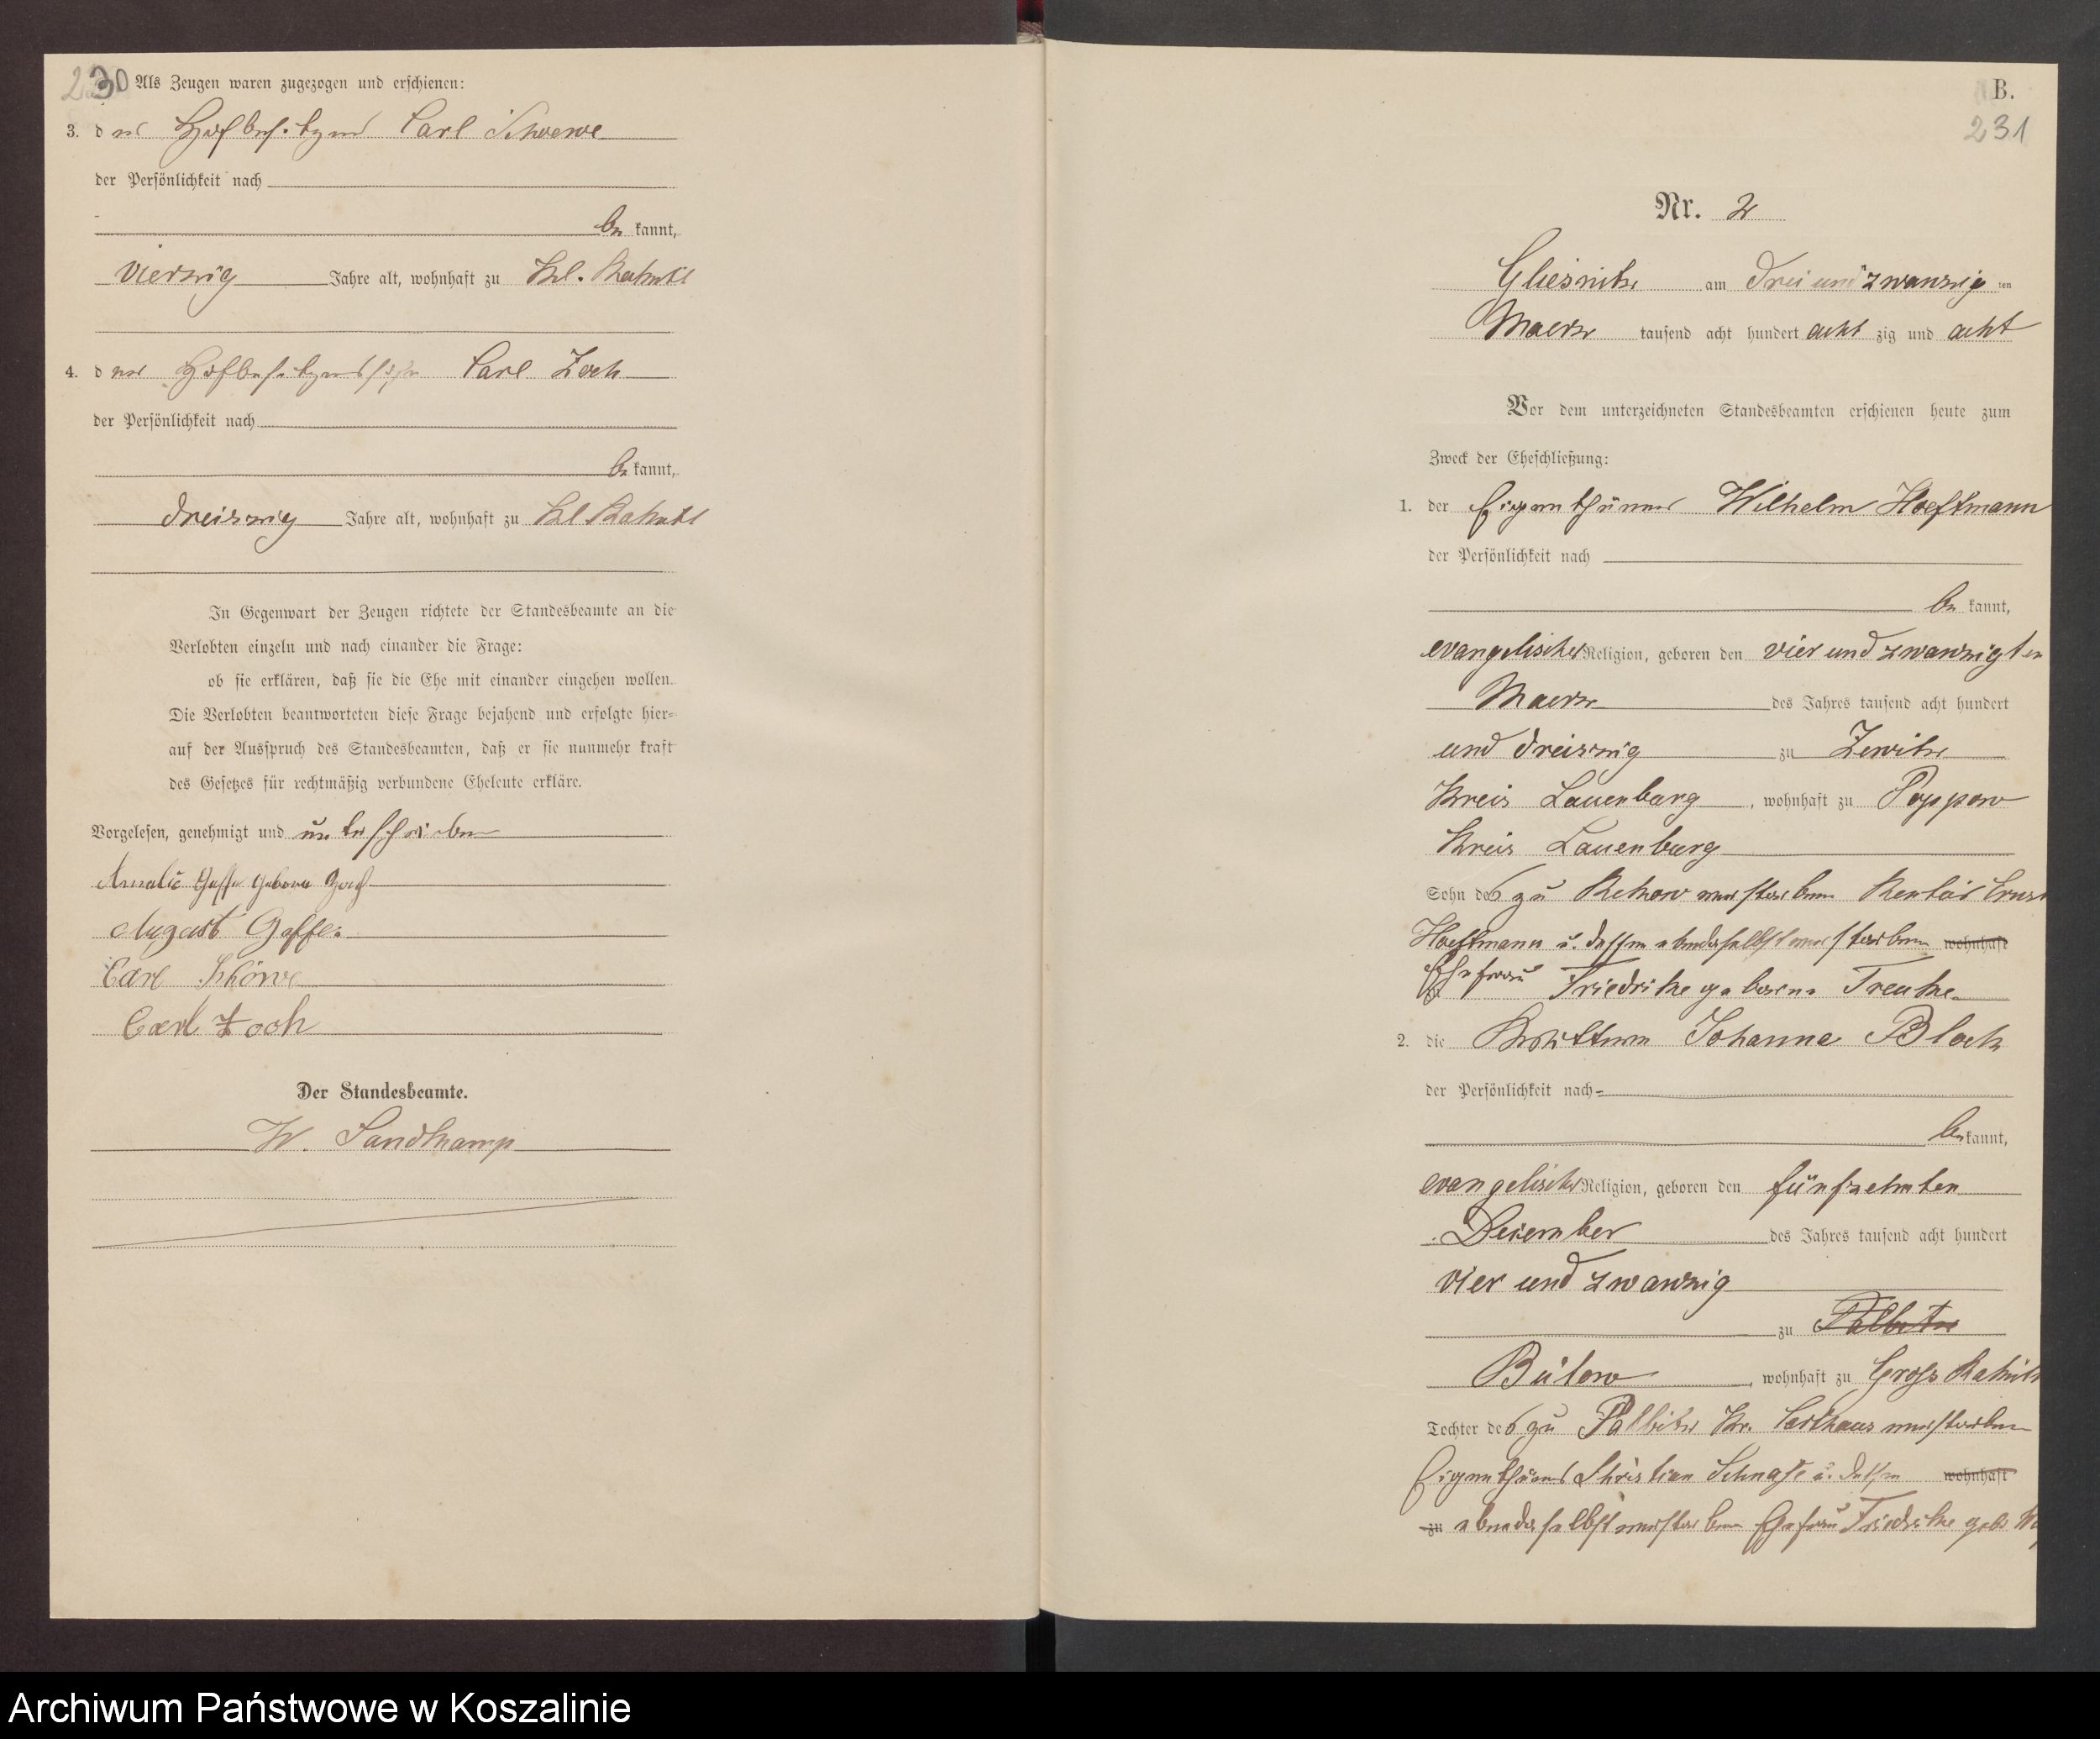 230
Als Zeugen waren zugezogen und erschienen:
3. der Hofbesitzer Carl Schwewe
der Persönlichkeit nach
be kannt,
vierzig Jahre alt, wohnhaft zu Kl. Rakitt
4. der Hofbesitzerssohn Carl Zoch
der Persönlichkeit nach
be kannt,
dreiszig Jahre alt, wohnhaft zu Kl Rakitt
In Gegenwart der Zeugen richtete der Standesbeamte an die
Verlobten einzeln und nach einander die Frage:
ob sie erklären, daß sie die Ehe mit einander eingehen wollen.
Die Verlobten beantworteten diese Frage bejahend und erfolgte hier=
auf der Ausspruch des Standesbeamten, daß er sie nunmehr kraft
des Gesetzes für rechtmäßig verbundene Eheleute erkläre.
Vorgelesen, genehmigt und unterschrieben
Amalie geborne Zoch
August
Carl Schöwe
Carl Zoch
Der Standesbeamte.
W. Sandkamp
B.
231
Nr. 2
Gliesnitz am drei und zwanzig ten
Maerz tausend acht hundert acht zig und acht
Vor dem unterzeichneten Standesbeamten erschienen heute zum
Zweck der Eheschließung:
1. der Eigenthümer Wilhelm Hoeftmann
der Persönlichkeit nach
be kannt,
evangelischer Religion, geboren den vier und zwanzigten
Maerz des Jahres tausend acht hundert
und dreiszig zu Zewitz
Kreis Lauenburg, wohnhaft zu Poppow
Kreis Lauenburg
Sohn des zu Rekow verstorbenen Rentier Ernst
Hoeftmann u. dessen ebendaselbst verstorbenen wohnhaft
zu Ehefrau Friedrike geborene Treutke
2. die Johanna Block
der Persönlichkeit nach
be kannt,
evangelischer Religion, geboren den fünfzehnten
Dezember des Jahres tausend acht hundert
vier und zwanzig
zu
Bütow, wohnhaft zu Gross Rakitt
Tochter des zu Palbitz Kr. Carthaus verstorbenen
Eigenthümers Christian Schnase u. dessen wohnhaft
zu ebendaselbst verstorbenen Ehefrau Friedrike geb.